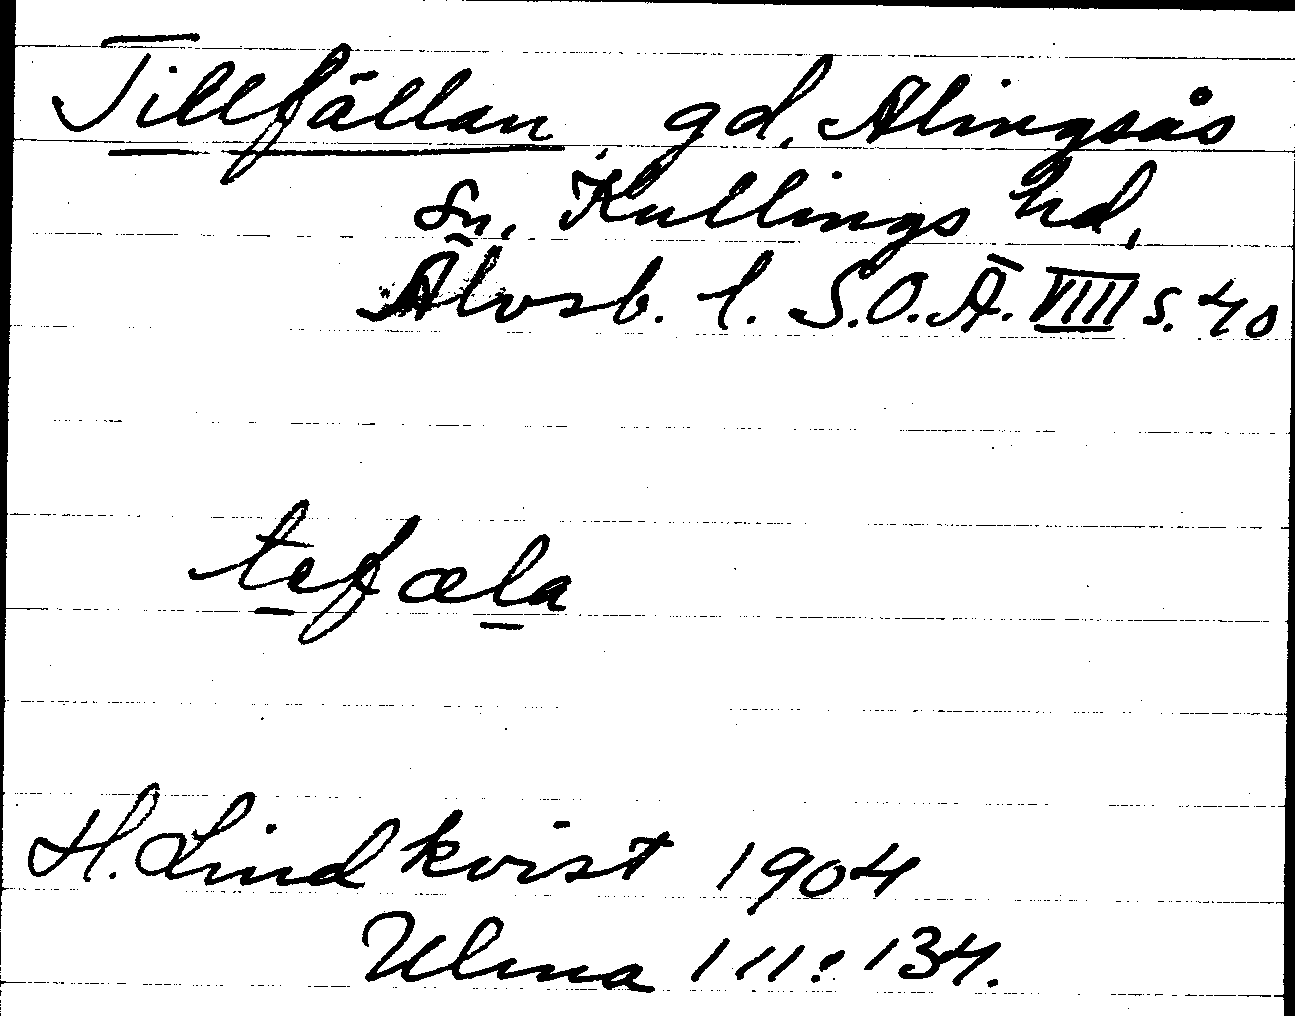 Tillfällan, gd, Alingsås
sn, Kullings hd,
Älvsb. l. S.O.Ä. VIII s. 40
tefæla
H. Lindkvist 1904
Ulma 111:134.